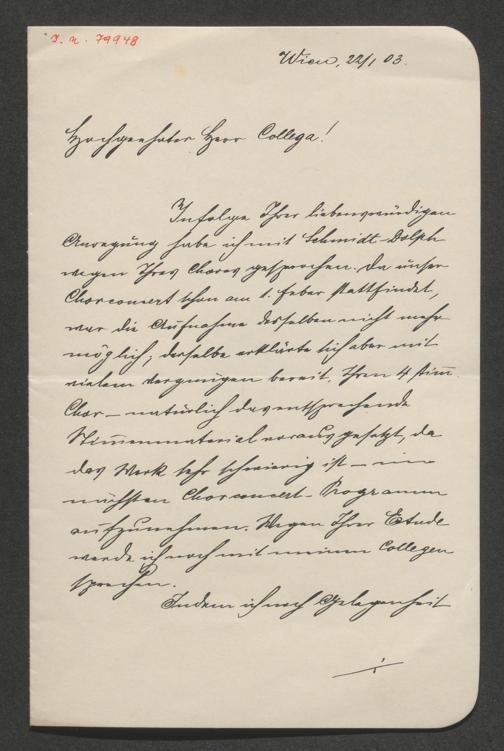 I. N. 79948
Wien, 22/1 03.
Hochgeehrter Herr Collega!
Infolge Ihrer liebenswürdigen
Anregung habe ich mit Schmidt-Dolph
wegen Ihres Chores gesprochen. Da unser
Chorconcert schon am 1. Feber stattfindet,
war die Aufnahme desselben nicht mehr
möglich; derselbe erklärte sich aber mit
vielem Vergnügen bereit, Ihren 4 stim̄.
Chor – natürlich das entsprechende
Stim̄enmaterial vorausgesetzt, da
das Werk sehr schwierig ist – im
nächsten Chorconcert-Programm
aufzunehmen. Wegen Ihrer Etude
werde ich noch mit meinen Collegen
sprechen.
Indem ich noch Gelegenheit